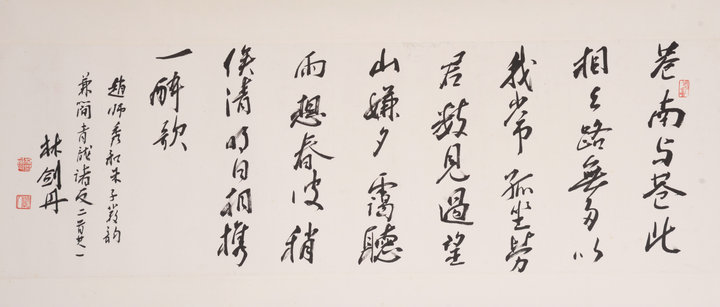 巷南与巷北
相去路無多以
我常孤坐勞
君数見過望
山嫌夕靄聽
雨想春波稍
俟清明日相携
一醉歌
趙師秀和朱子韻
兼簡諸友二首之一
林剑丹